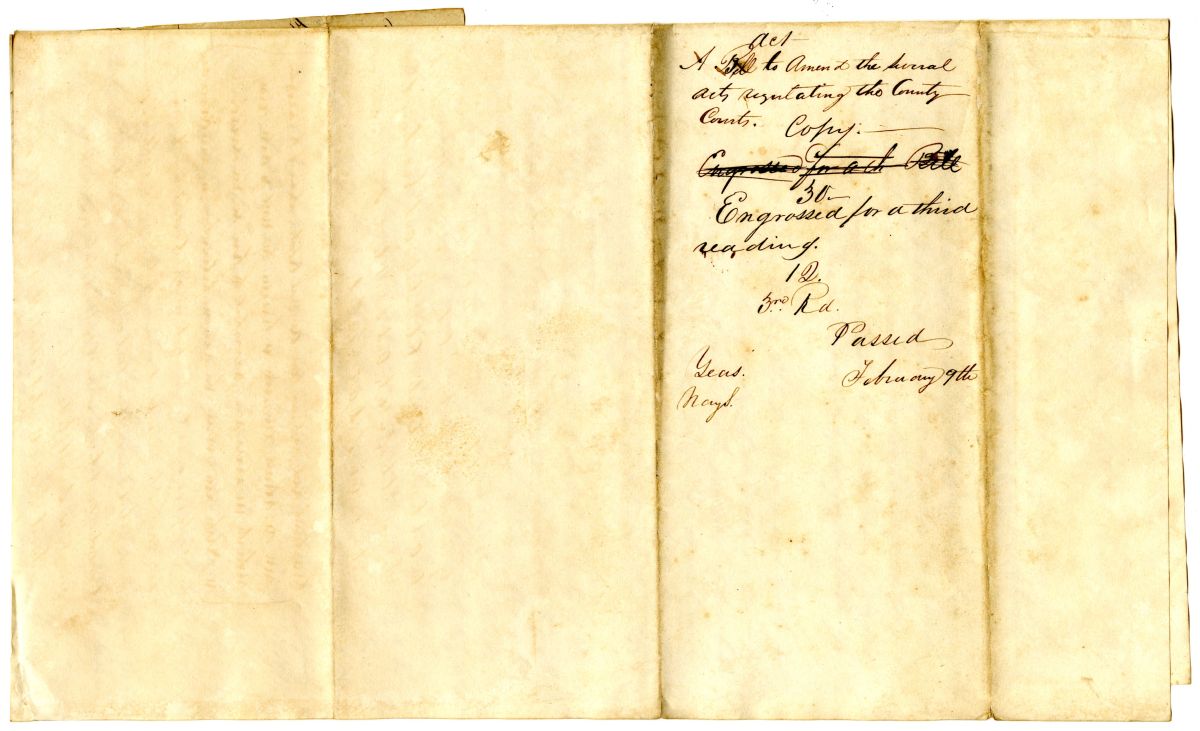 act
A Bill to Amend the several
acts regulating the County
Courts.
Copy.
Engrossed for a th Bill
30
Engrossed for a third
reading.
12.
3rd Rd.
Passed
Yeas.
February 9th
Nays.